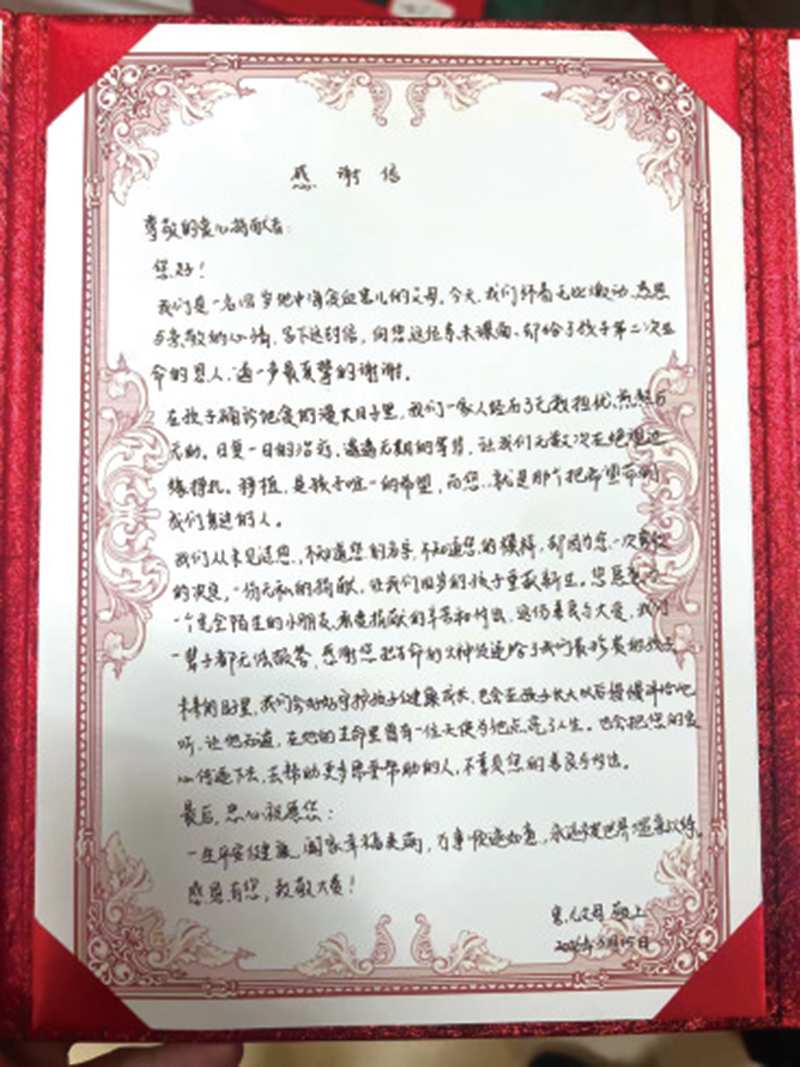 感谢信
尊敬的爱心捐献者：
您好！
我们是一名 岁地中海贫血患儿的父母。今天，我们怀着无比激动、感恩
与崇敬的心情，写下这封信，向您这位素未谋面、却给了孩子第二次生
命的恩人，道一声最真挚的谢谢。
在孩子确诊地贫的漫长日子里，我们一家人经历了无数担忧、煎熬与
无助。日复一日的治疗，遥遥无期的等待，让我们无数次在绝望边
缘挣扎。移植，是孩子唯一的希望，而您，就是那个把希望带到
我们身边的人。
我们从未见过您，不知道您的名字，不知道您的模样，却因为您一次
的决定，一份无私的捐献，让我们 岁的孩子重获新生。您愿意为
一个完全陌生的小朋友，承受捐献的辛苦和付出，这份善良与大爱，我们
一辈子都无法报答，感谢您把生命的火种传递给了我们最珍贵的孩子
未来的日子里，我们会好好守护孩子健康成长，也会在孩子长大以后慢慢讲给他
听，让他知道，在他的生命里曾有一位天使为他点亮了人生。也会把您的爱
心传递下去，去帮助更多需要帮助的人，不辜负您的善良与付出。
最后，衷心祝愿您：
一生平安健康，阖家幸福美满，万事顺遂如意，永远被世界温柔以待。
感恩有您，致敬大爱！
患儿父母 敬上